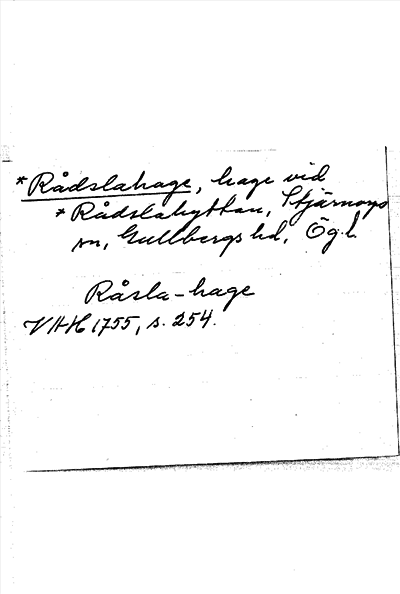 *Rådslahage, hage vid
*Rådslahyttan, Stjärnorps
sn, Gullbergs hd, Ög.l.
Råsla-hage
VHH 1755, s. 254.